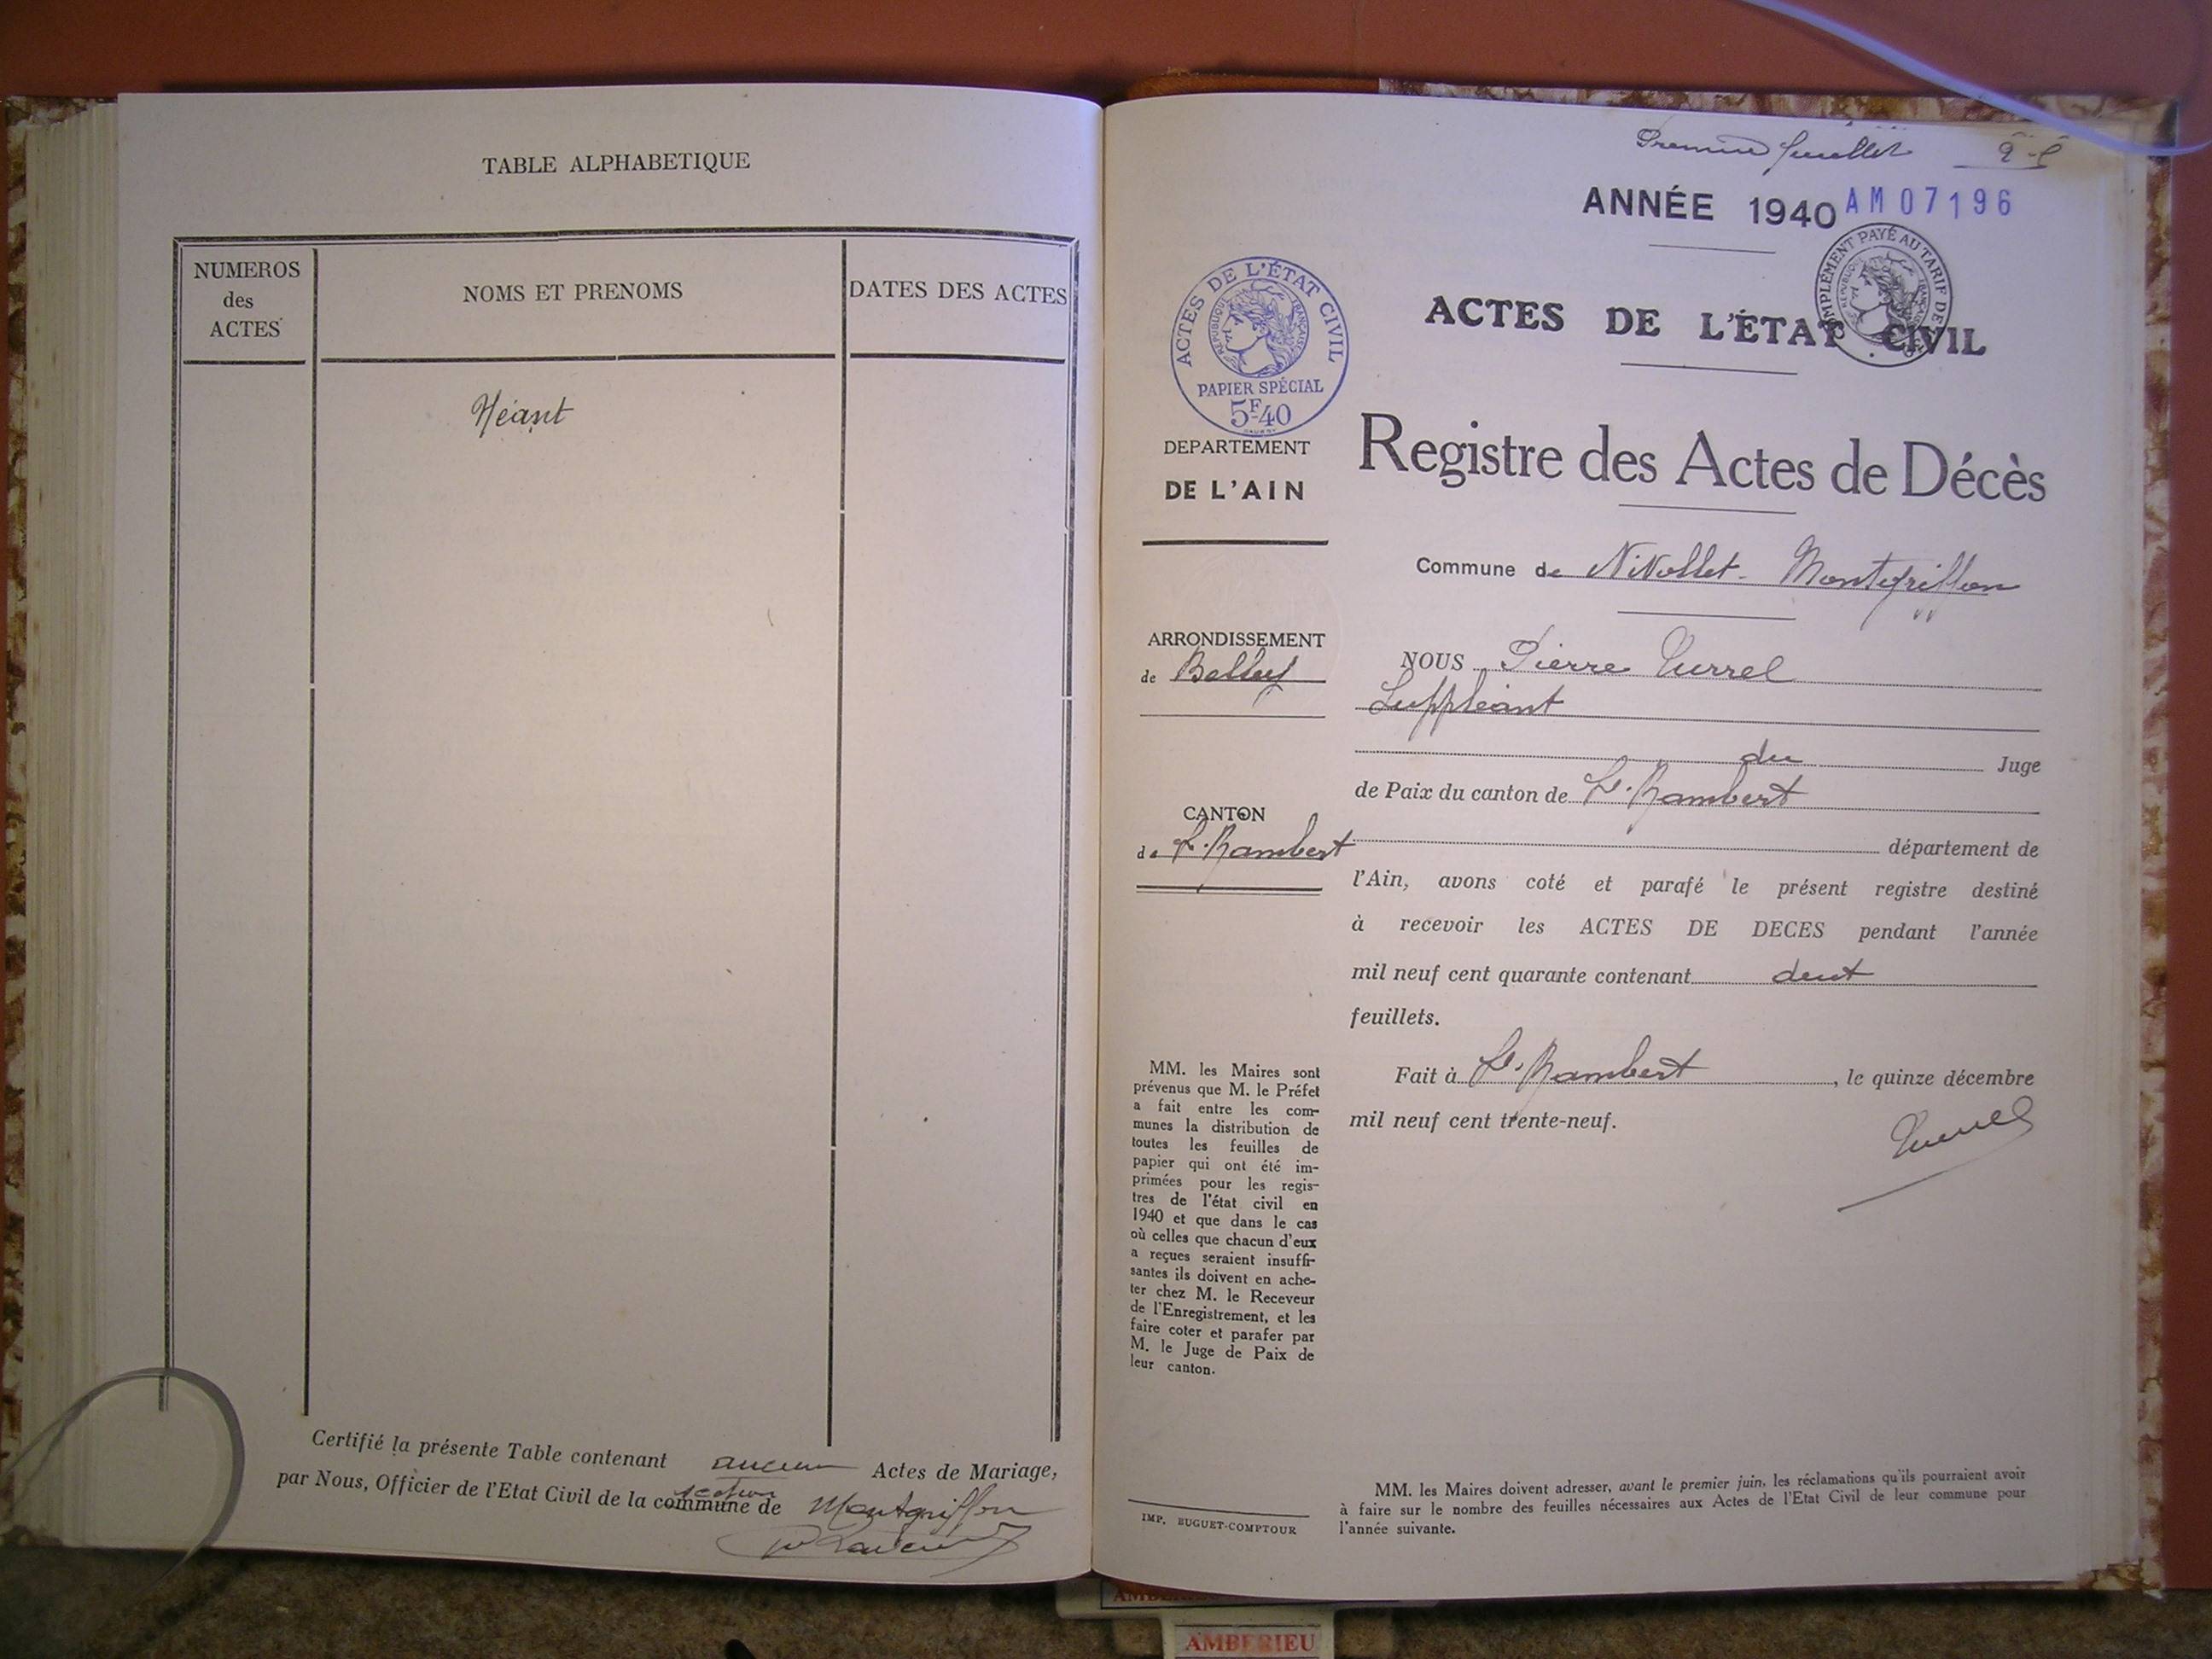 TABLE ALPHABETIQUE
NUMEROS
des
ACTES
NOMS ET PRENOMS
DATES DES ACTES
Néant
Certifié la présente Table contenant aucun Actes de Mariage,
section
par Nous, Officier de l'Etat Civil de la commune de Montgriffon
Premier feuillet
ANNÉE 1940
AM07196
ACTES DE L'ÉTAT CIVIL
RÉPUBLIQUE FRANÇAISE
PAPIER SPÉCIAL
5F40
COMPLÉMENT PAYÉ AU TARIF DE
RÉPUBLIQUE FRANÇAISE
ACTES DE L'ÉTAT CIVIL
DEPARTEMENT
DE L'AIN
Registre des Actes de Décès
Commune de Nivollet-Montgriffon
ARRONDISSEMENT
de Belley
CANTON
de St. Rambert
NOUS Pierre Turrel
Suppléant
du Juge
de Paix du canton de St. Rambert
département de
l'Ain, avons coté et parafé le présent registre destiné
à recevoir les ACTES DE DECES pendant l'année
mil neuf cent quarante contenant deux
feuillets.
Fait à St. Rambert, le quinze décembre
mil neuf cent trente-neuf.
Turrel
MM. les Maires sont
prévenus que M. le Préfet
a fait entre les com-
munes la distribution de
toutes les feuilles de
papier qui ont été im-
primées pour les regis-
tres de l'état civil en
1940 et que dans le cas
où celles que chacun d'eux
a reçues seraient insuffi-
santes ils doivent en ache-
ter chez M. le Receveur
de l'Enregistrement, et les
faire coter et parafer par
M. le Juge de Paix de
leur canton.
IMP. BUGUET-COMPTOUR
MM. les Maires doivent adresser, avant le premier juin, les réclamations qu'ils pourraient avoir
à faire sur le nombre des feuilles nécessaires aux Actes de l'Etat Civil de leur commune pour
l'année suivante.
AMBERIEU